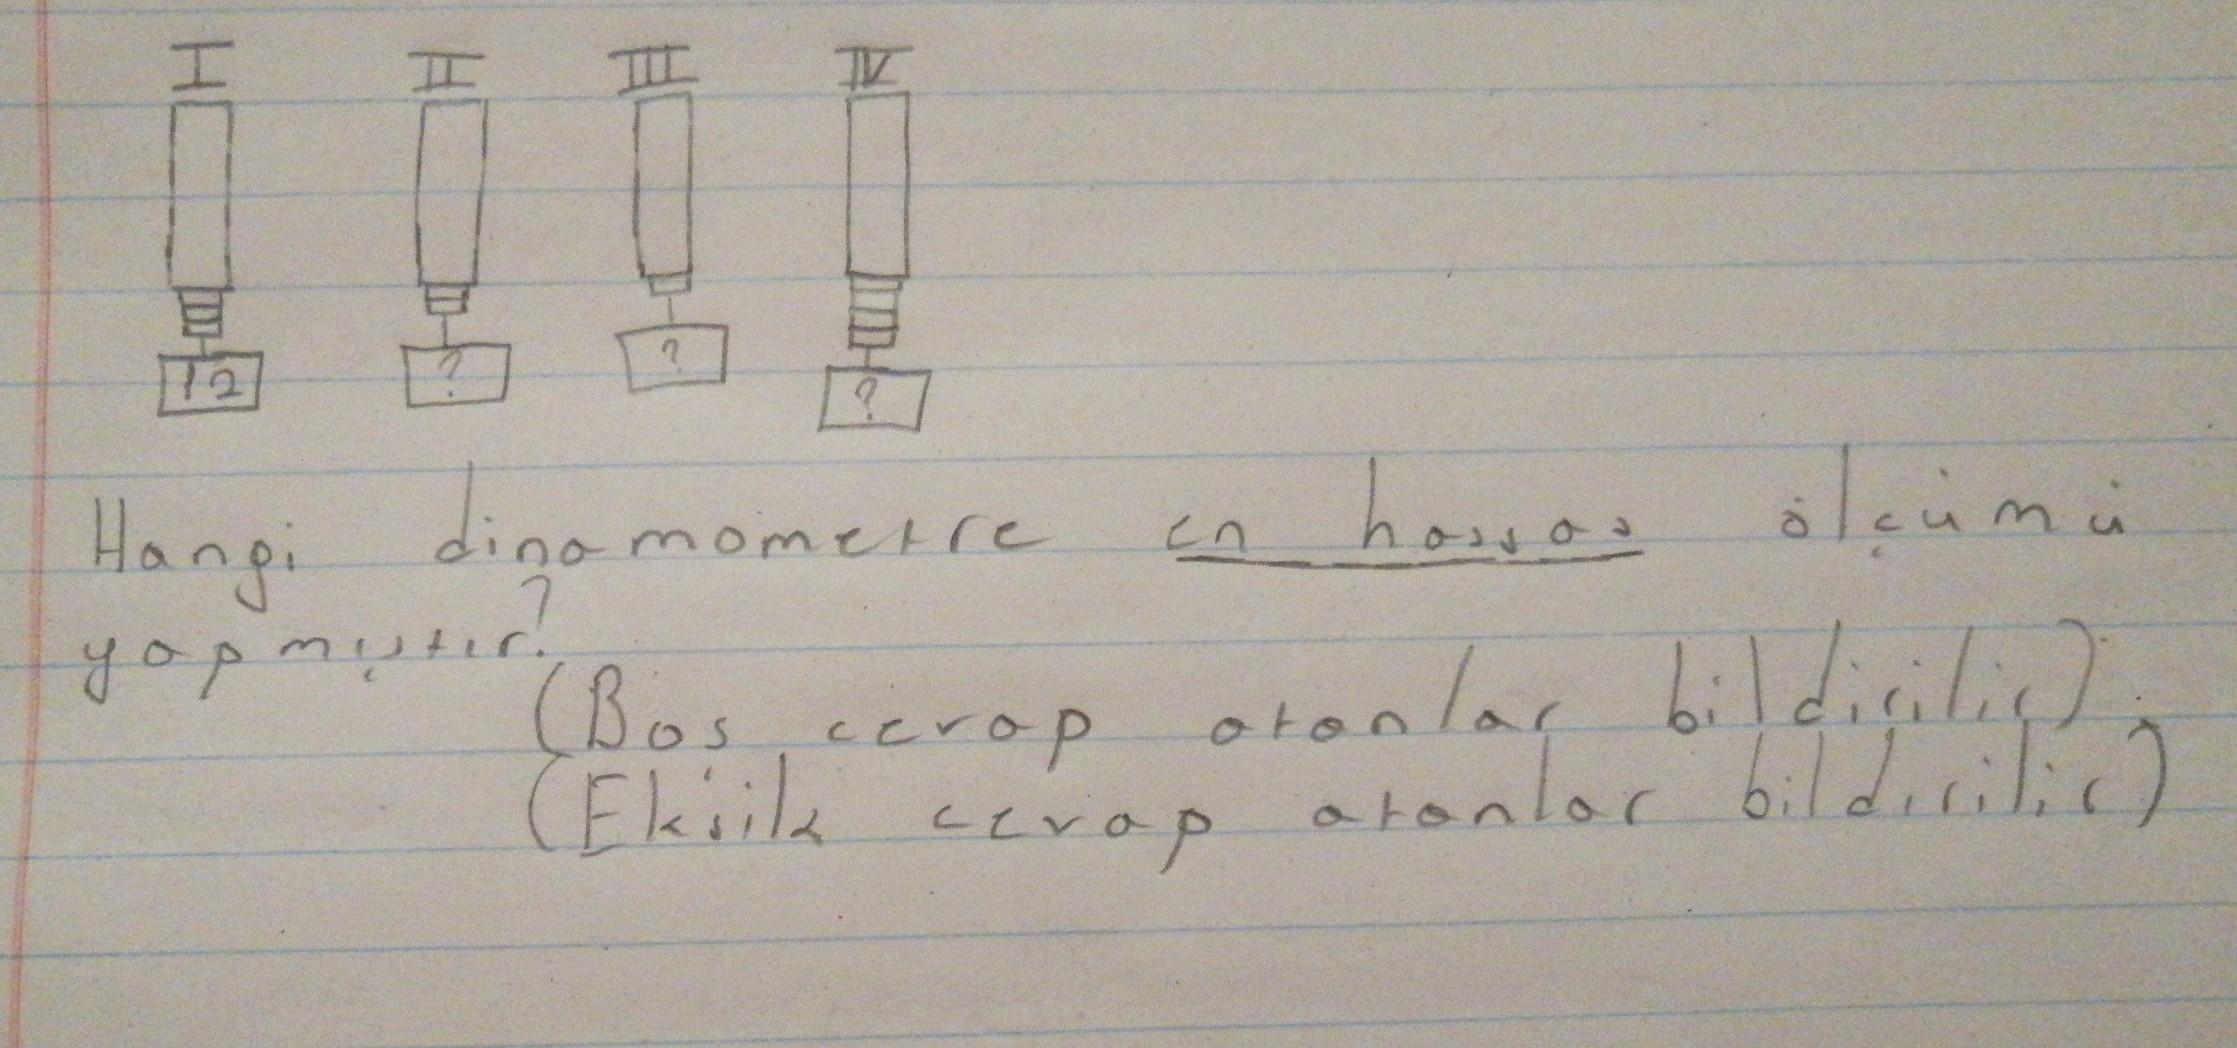 I II III IV
12 ? ? ?
Hangi dinamometre en hassas ölçümü
yapmıştır?
(Boş cevap atanlar bildirilir).
(Eksik cevap atanlar bildirilir)